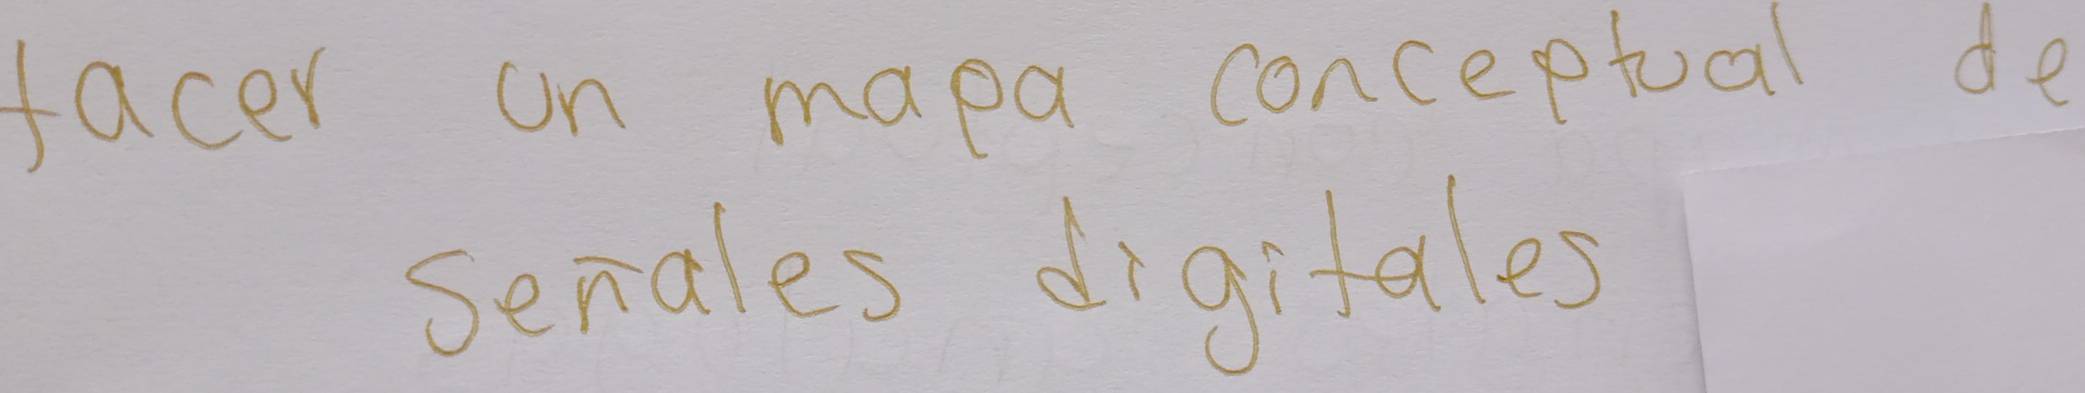 facer un mapa conceptual de
señales digitales